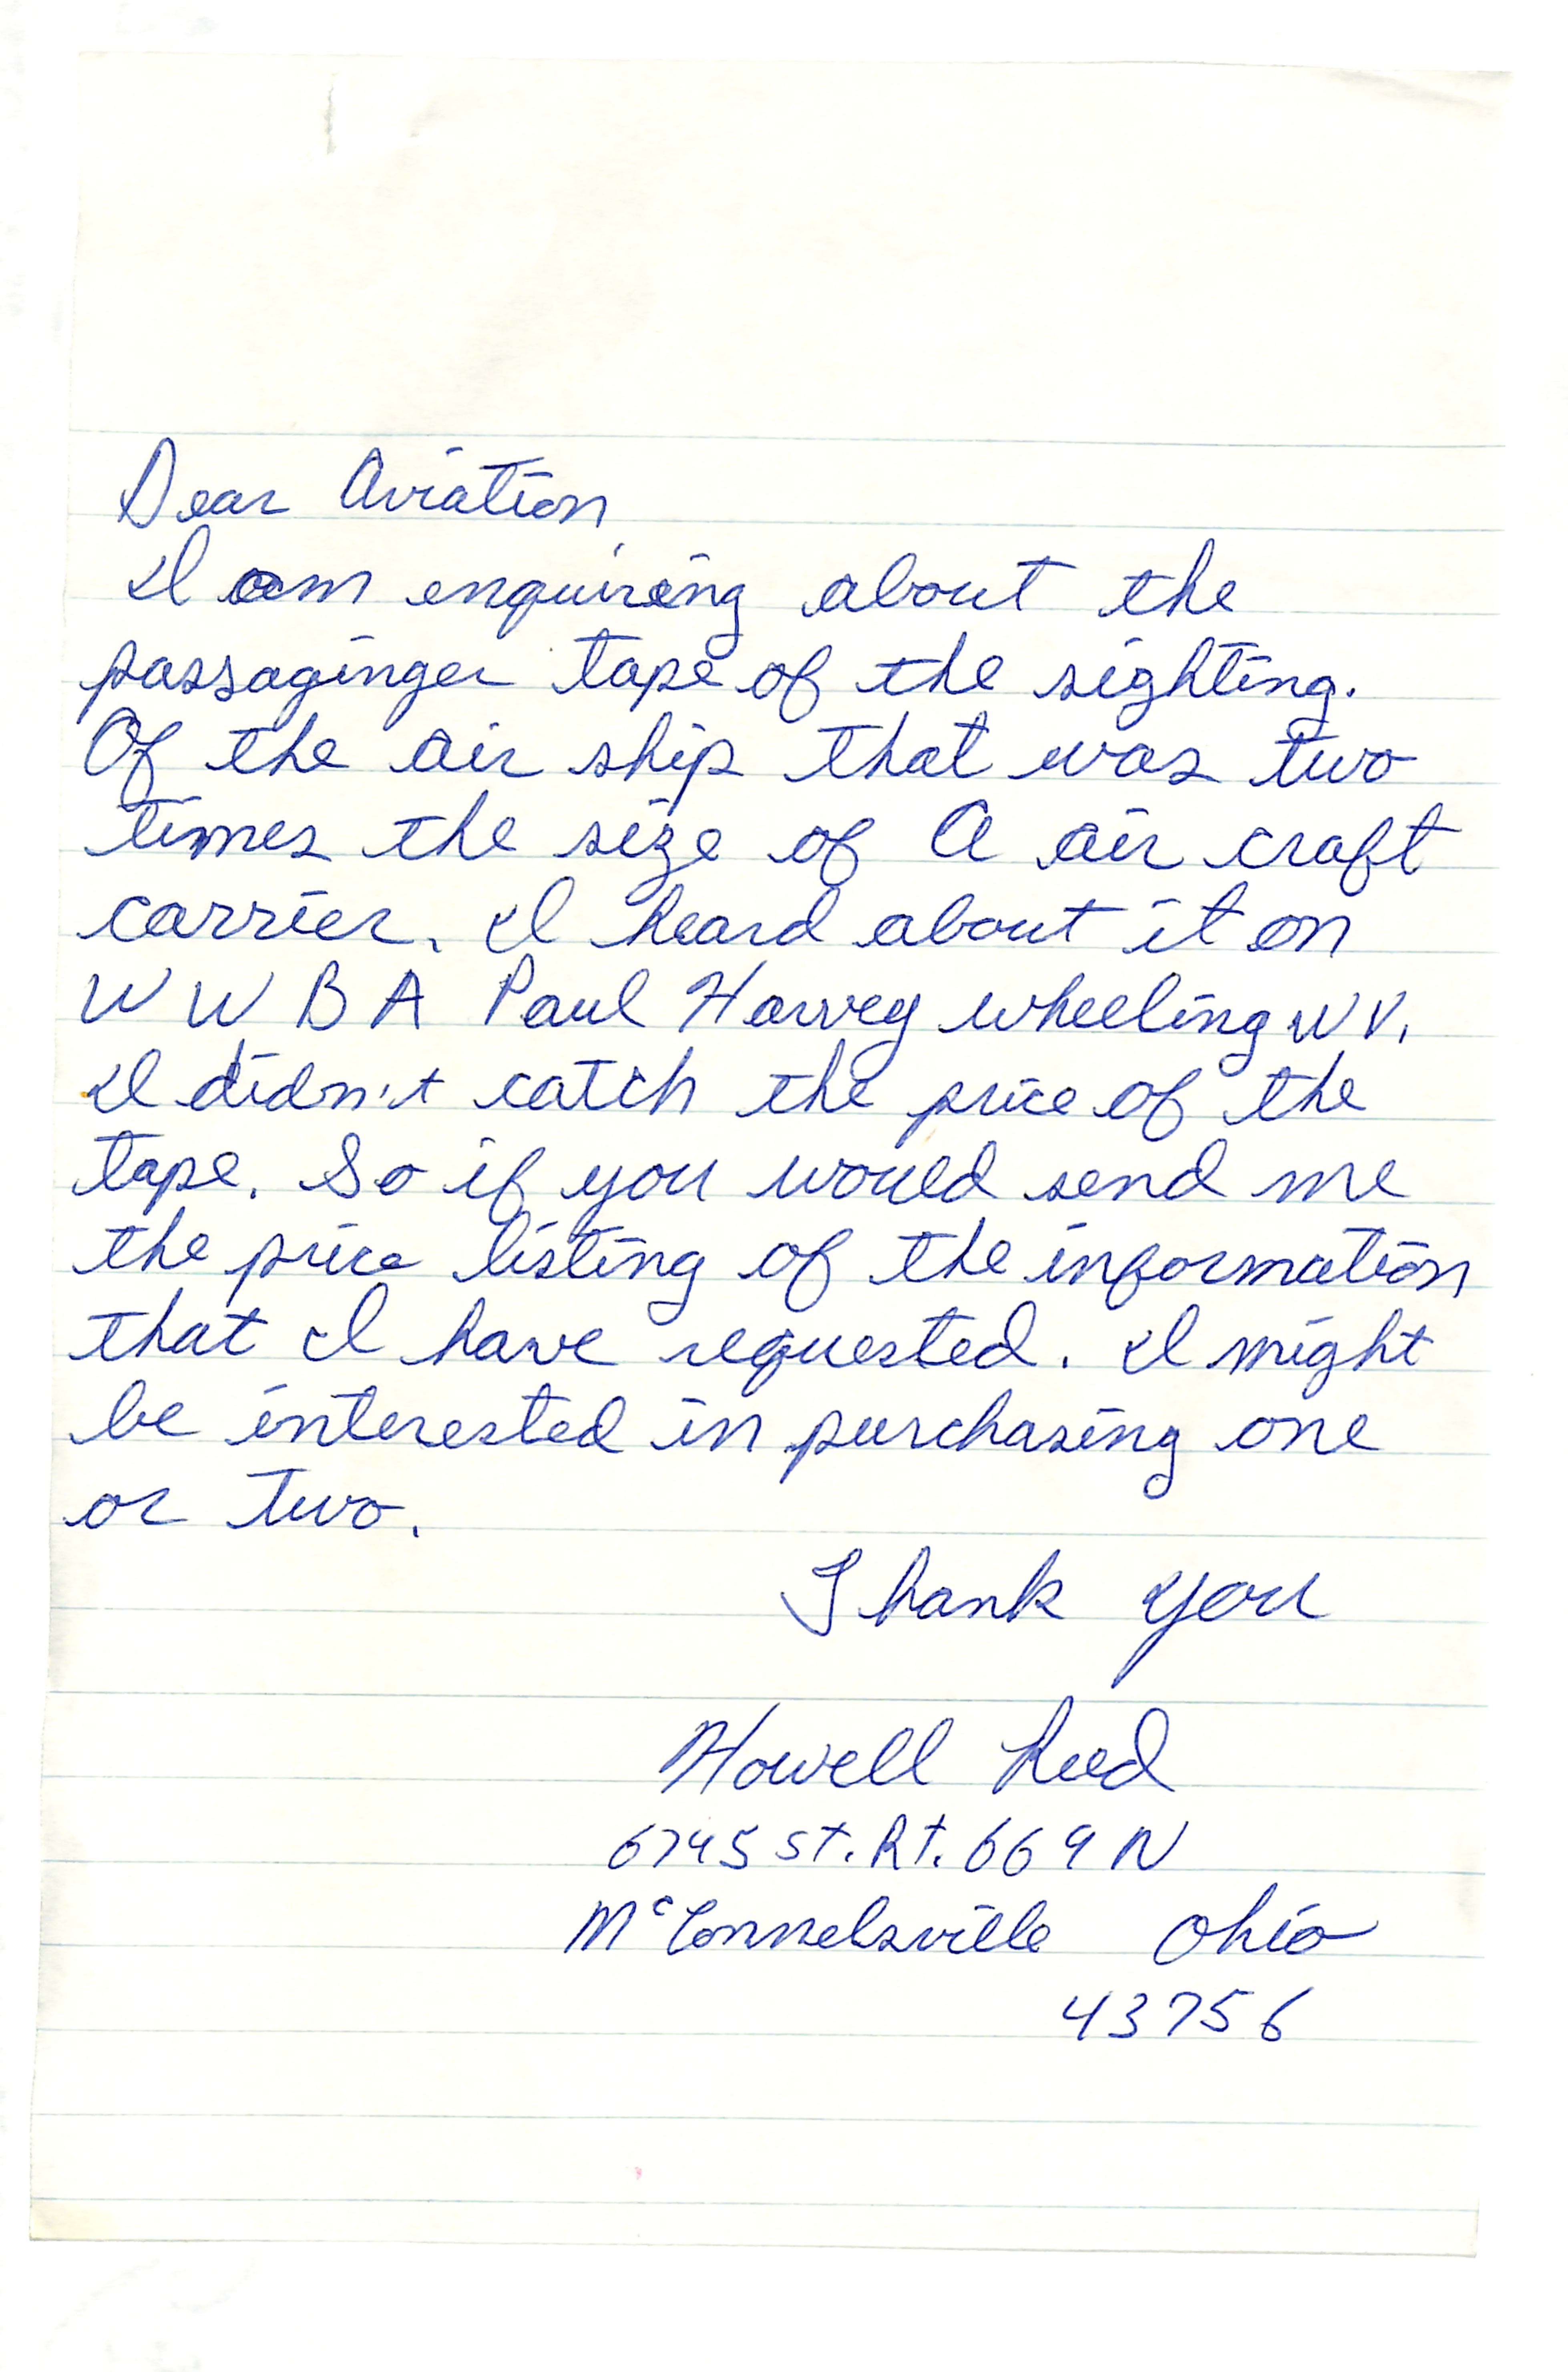 Dear Aviation,
I am enquireing about the
passaginger tape of the sighting.
Of the air ship that was two
times the size of A air craft
carrier. I heard about it on
W W B A Paul Harvey wheeling W V.
I didn't catch the price of the
tape. So if you would send me
the price listing of the information
that I have requested. I might
be interested in purchasing one
or two.
Thank you
Howell Reed
6745 St. Rt. 669 N
McConnelsville Ohio
43756